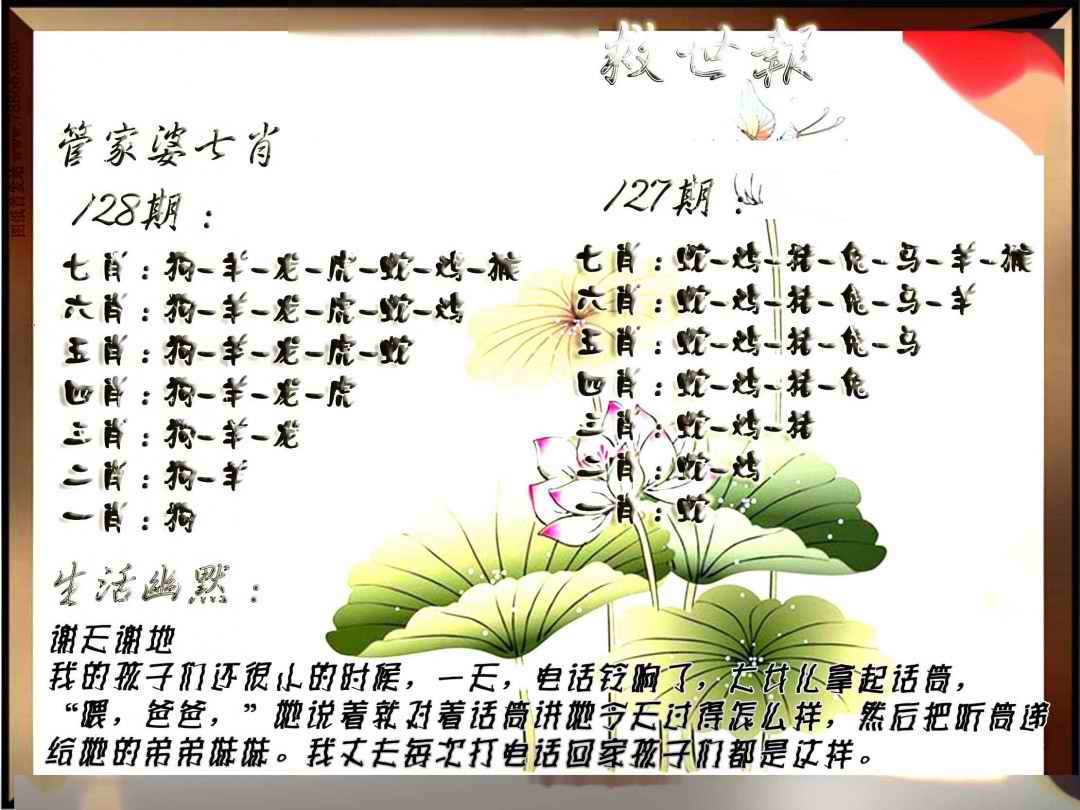 救世報
管家婆七肖
128期：
七肖：狗-羊-龙-虎-蛇-鸡-猴
六肖：狗-羊-龙-虎-蛇-鸡
五肖：狗-羊-龙-虎-蛇
四肖：狗-羊-龙-虎
三肖：狗-羊-龙
二肖：狗-羊
一肖：狗
127期：
七肖：蛇-鸡-猪-兔-马-羊-猴
六肖：蛇-鸡-猪-兔-马-羊
五肖：蛇-鸡-猪-兔-马
四肖：蛇-鸡-猪-兔
三肖：蛇-鸡-猪
二肖：蛇-鸡
一肖：蛇
生活幽默：
谢天谢地
我的孩子们还很小的时候，一天，电话铃响了，大女儿拿起话筒，
“喂，爸爸，”她说着就对着话筒讲她今天过得怎么样，然后把听筒递
给她的弟弟妹妹。我丈夫每次打电话回家孩子们都是这样。